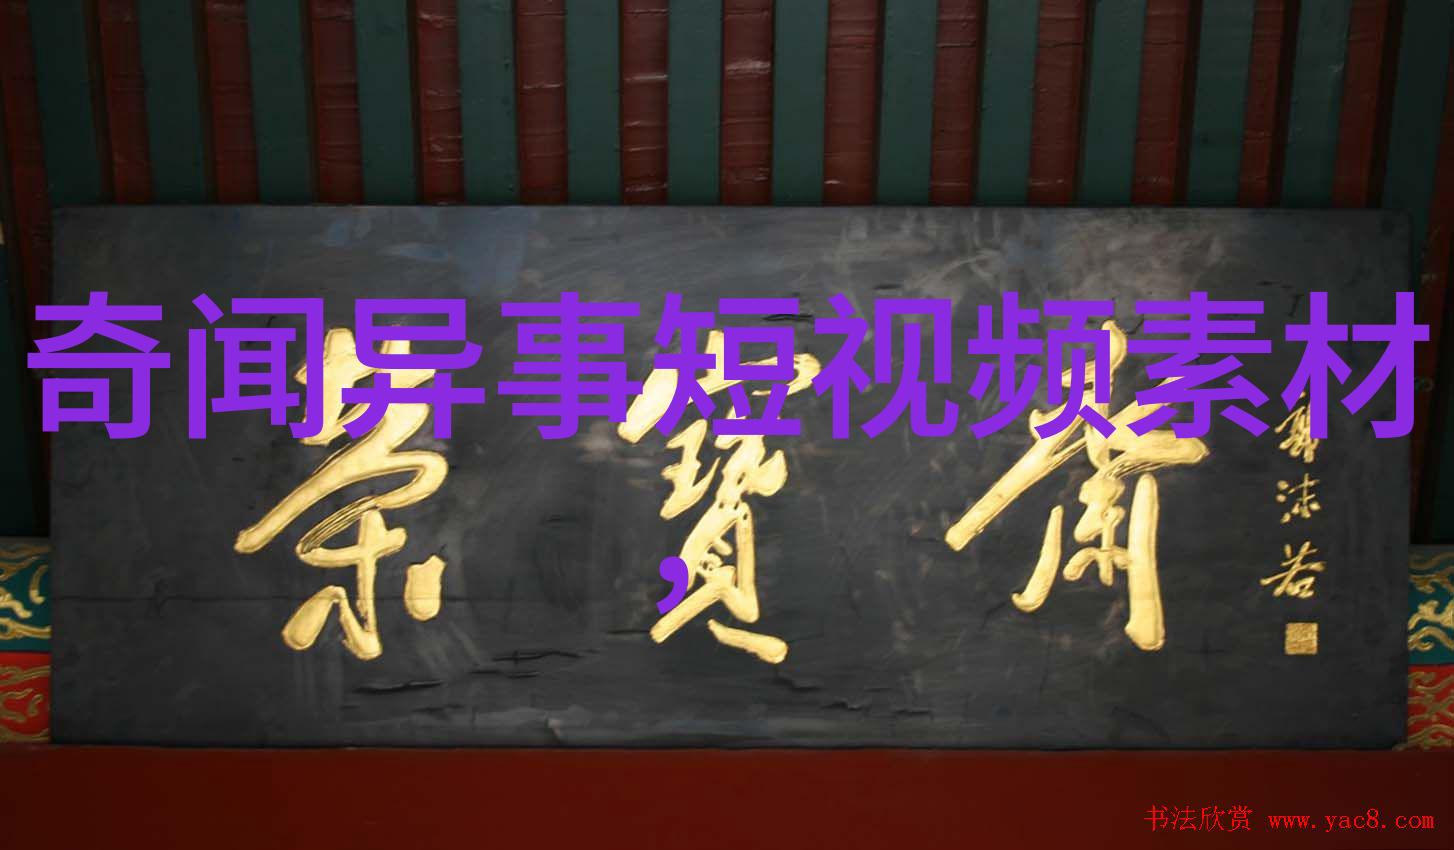 奇闻异事短视频素材
,
荣寳斋
郭沫若
书法欣赏 www.yac8.com